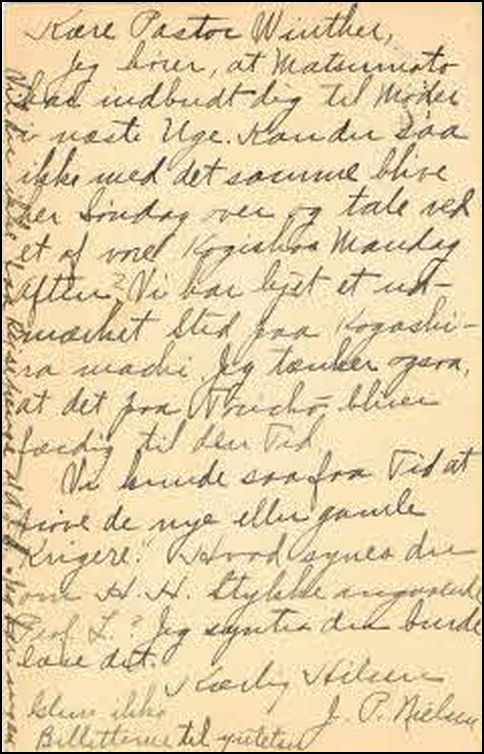 Kære Pastor Winther,
Jeg hører, at Matsumoto
har indbudt dig til Møder
i næste Uge. Kan du saa
ikke med det samme blive
her Søndag over og tale ved
et af vore Kogisho Mandag
Aften? Vi har lejet et ud-
mærket Sted paa Kogashi-
ra machi Jeg tænker ogsaa,
at det paa bliver
færdig til den Tid.
Vi kunde saa faa Tid at
prøve de nye eller gamle
"Krigere." Hvad synes du
om H. H. Stykke angaaende
Prof L.? Jeg syntes du burde
læse det.
Kærlig Hilsen
J. P. Nielsen
Glem ikke
Billetterne til